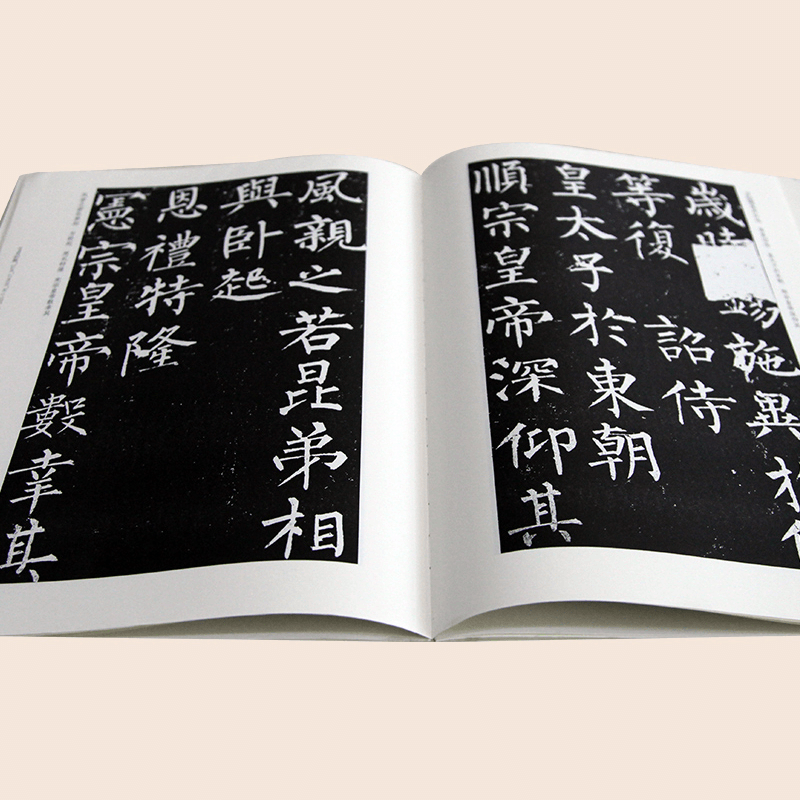 歲時施異
等復 詔侍
皇太子於東朝
順宗皇帝深仰其
風親之若昆弟相
與卧起
恩禮特隆
憲宗皇帝數幸其